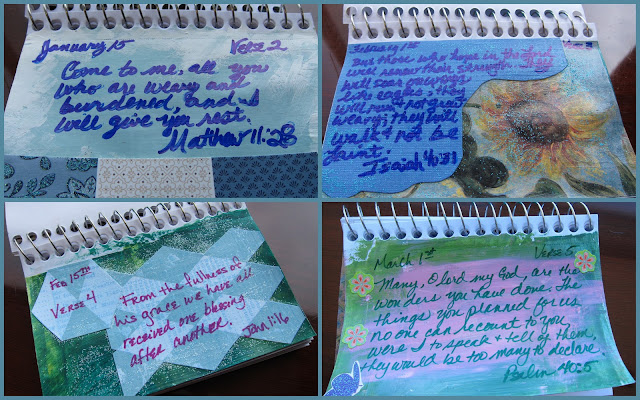 January 15 Verse 2
Come to me, all you
who are weary and
burdened, and I
will give you rest.
Matthew 11:28
February 1st
But those who hope in the Lord
will renew their strength. They
will soar on wings
like eagles; they
will run & not grow
weary; they will
walk & not be
faint.
Isaiah 40:31
Feb 15TH
Verse 4
From the fullness of
his grace we have all
received one blessing
after another.
John 1:16
March 1st Verse 5
Many, O Lord my God, are the
wonders you have done. The
things you planned for us
no one can recount to you
were I to speak & tell of them,
they would be too many to declare.
Psalm 40:5